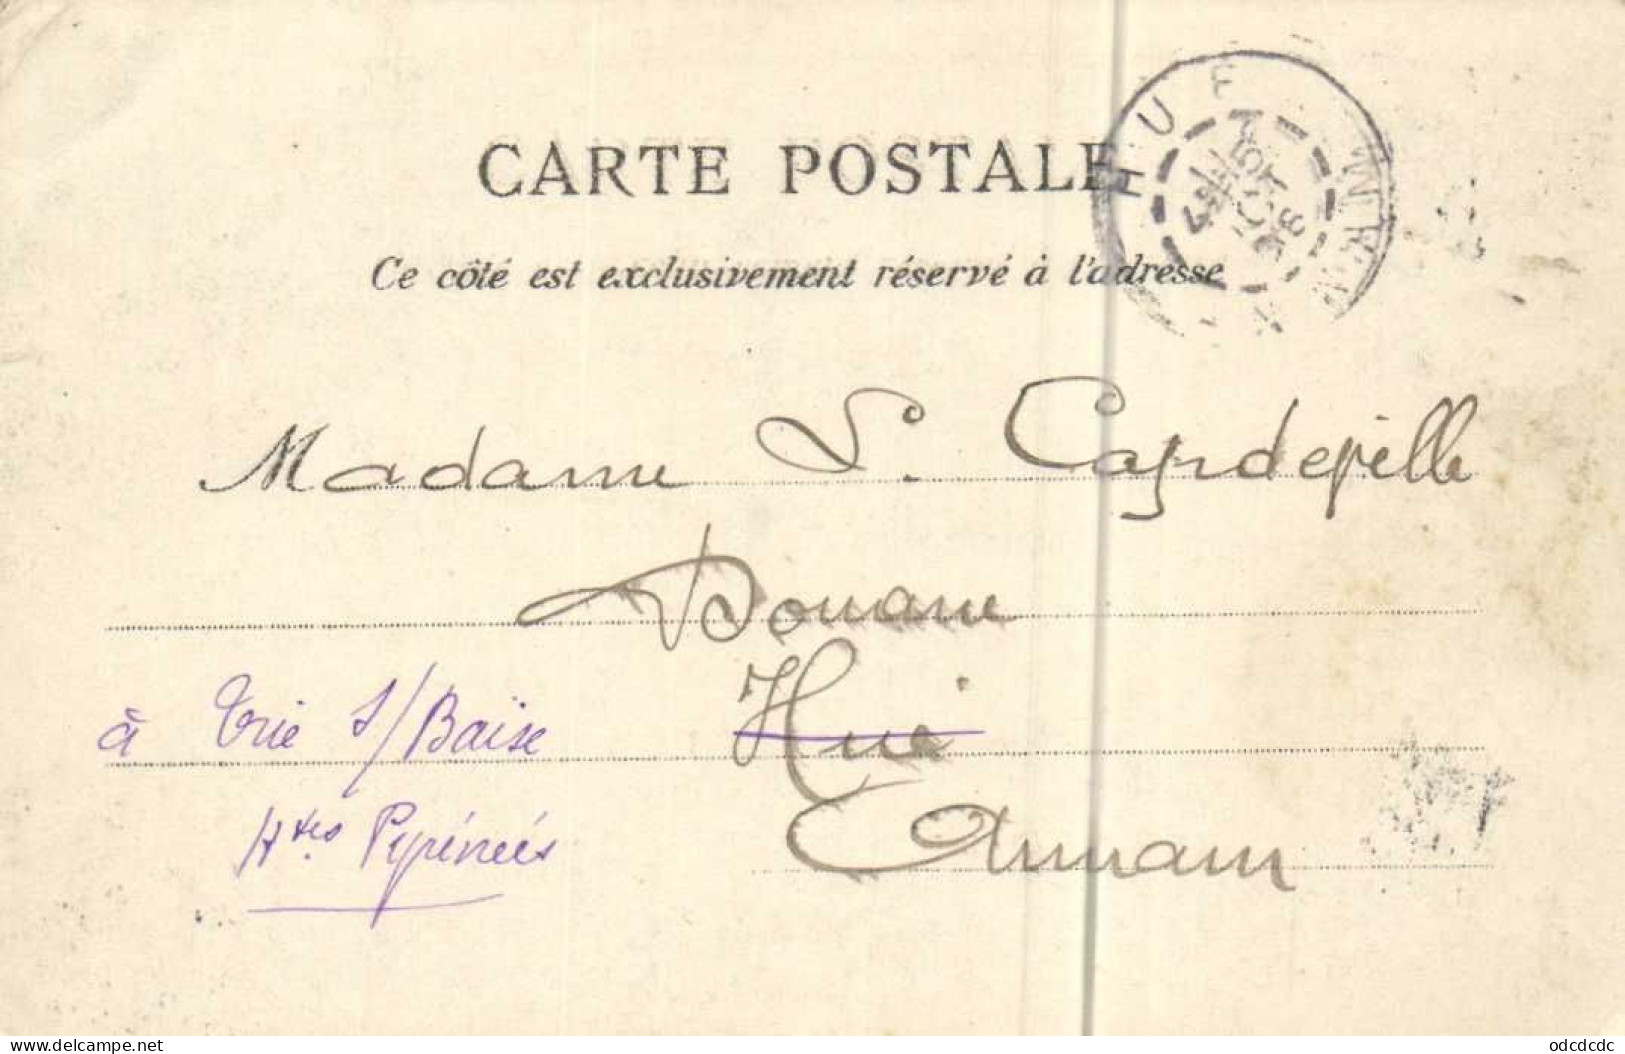 CARTE POSTALE
Ce côté est exclusivement réservé à l'adresse
HUE
Madame S. Capdepille
Douane
Hué
Annam
à Trie s/Baïse
Htes Pyrénées
www.delcampe.net
odcdcdc